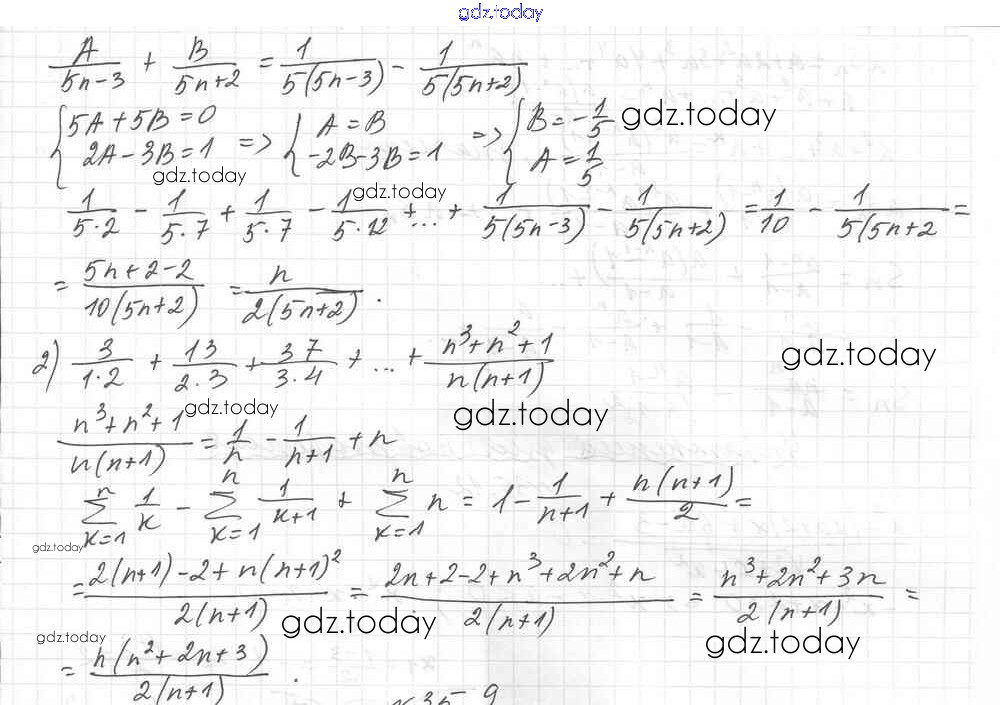 gdz.today
A/(5n-3) + B/(5n+2) = 1/(5(5n-3)) - 1/(5(5n+2))
{5A+5B=0 => {A=B => {B=-1/5 gdz.today
2A-3B=1 -2B-3B=1 A=1/5
gdz.today gdz.today
1/(5·2) - 1/(5·7) + 1/(5·7) - 1/(5·12) + ... + 1/(5(5n-3)) - 1/(5(5n+2)) = 1/10 - 1/(5(5n+2 =
= (5n+2-2)/(10(5n+2)) = n/(2(5n+2)).
2) 3/(1·2) + 13/(2·3) + 37/(3·4) + ... + (n³+n²+1)/(n(n+1))
gdz.today
gdz.today gdz.today
(n³+n²+1)/(n(n+1)) = 1/n - 1/(n+1) + n
∑_{k=1}^{n} 1/k - ∑_{k=1}^{n} 1/(k+1) + ∑_{k=1}^{n} n = 1 - 1/(n+1) + n(n+1)/2 =
gdz.today
= (2(n+1)-2+n(n+1)²)/(2(n+1)) = (2n+2-2+n³+2n²+n)/(2(n+1)) = (n³+2n²+3n)/(2(n+1)) =
gdz.today gdz.today gdz.today
= n(n²+2n+3)/(2(n+1)).